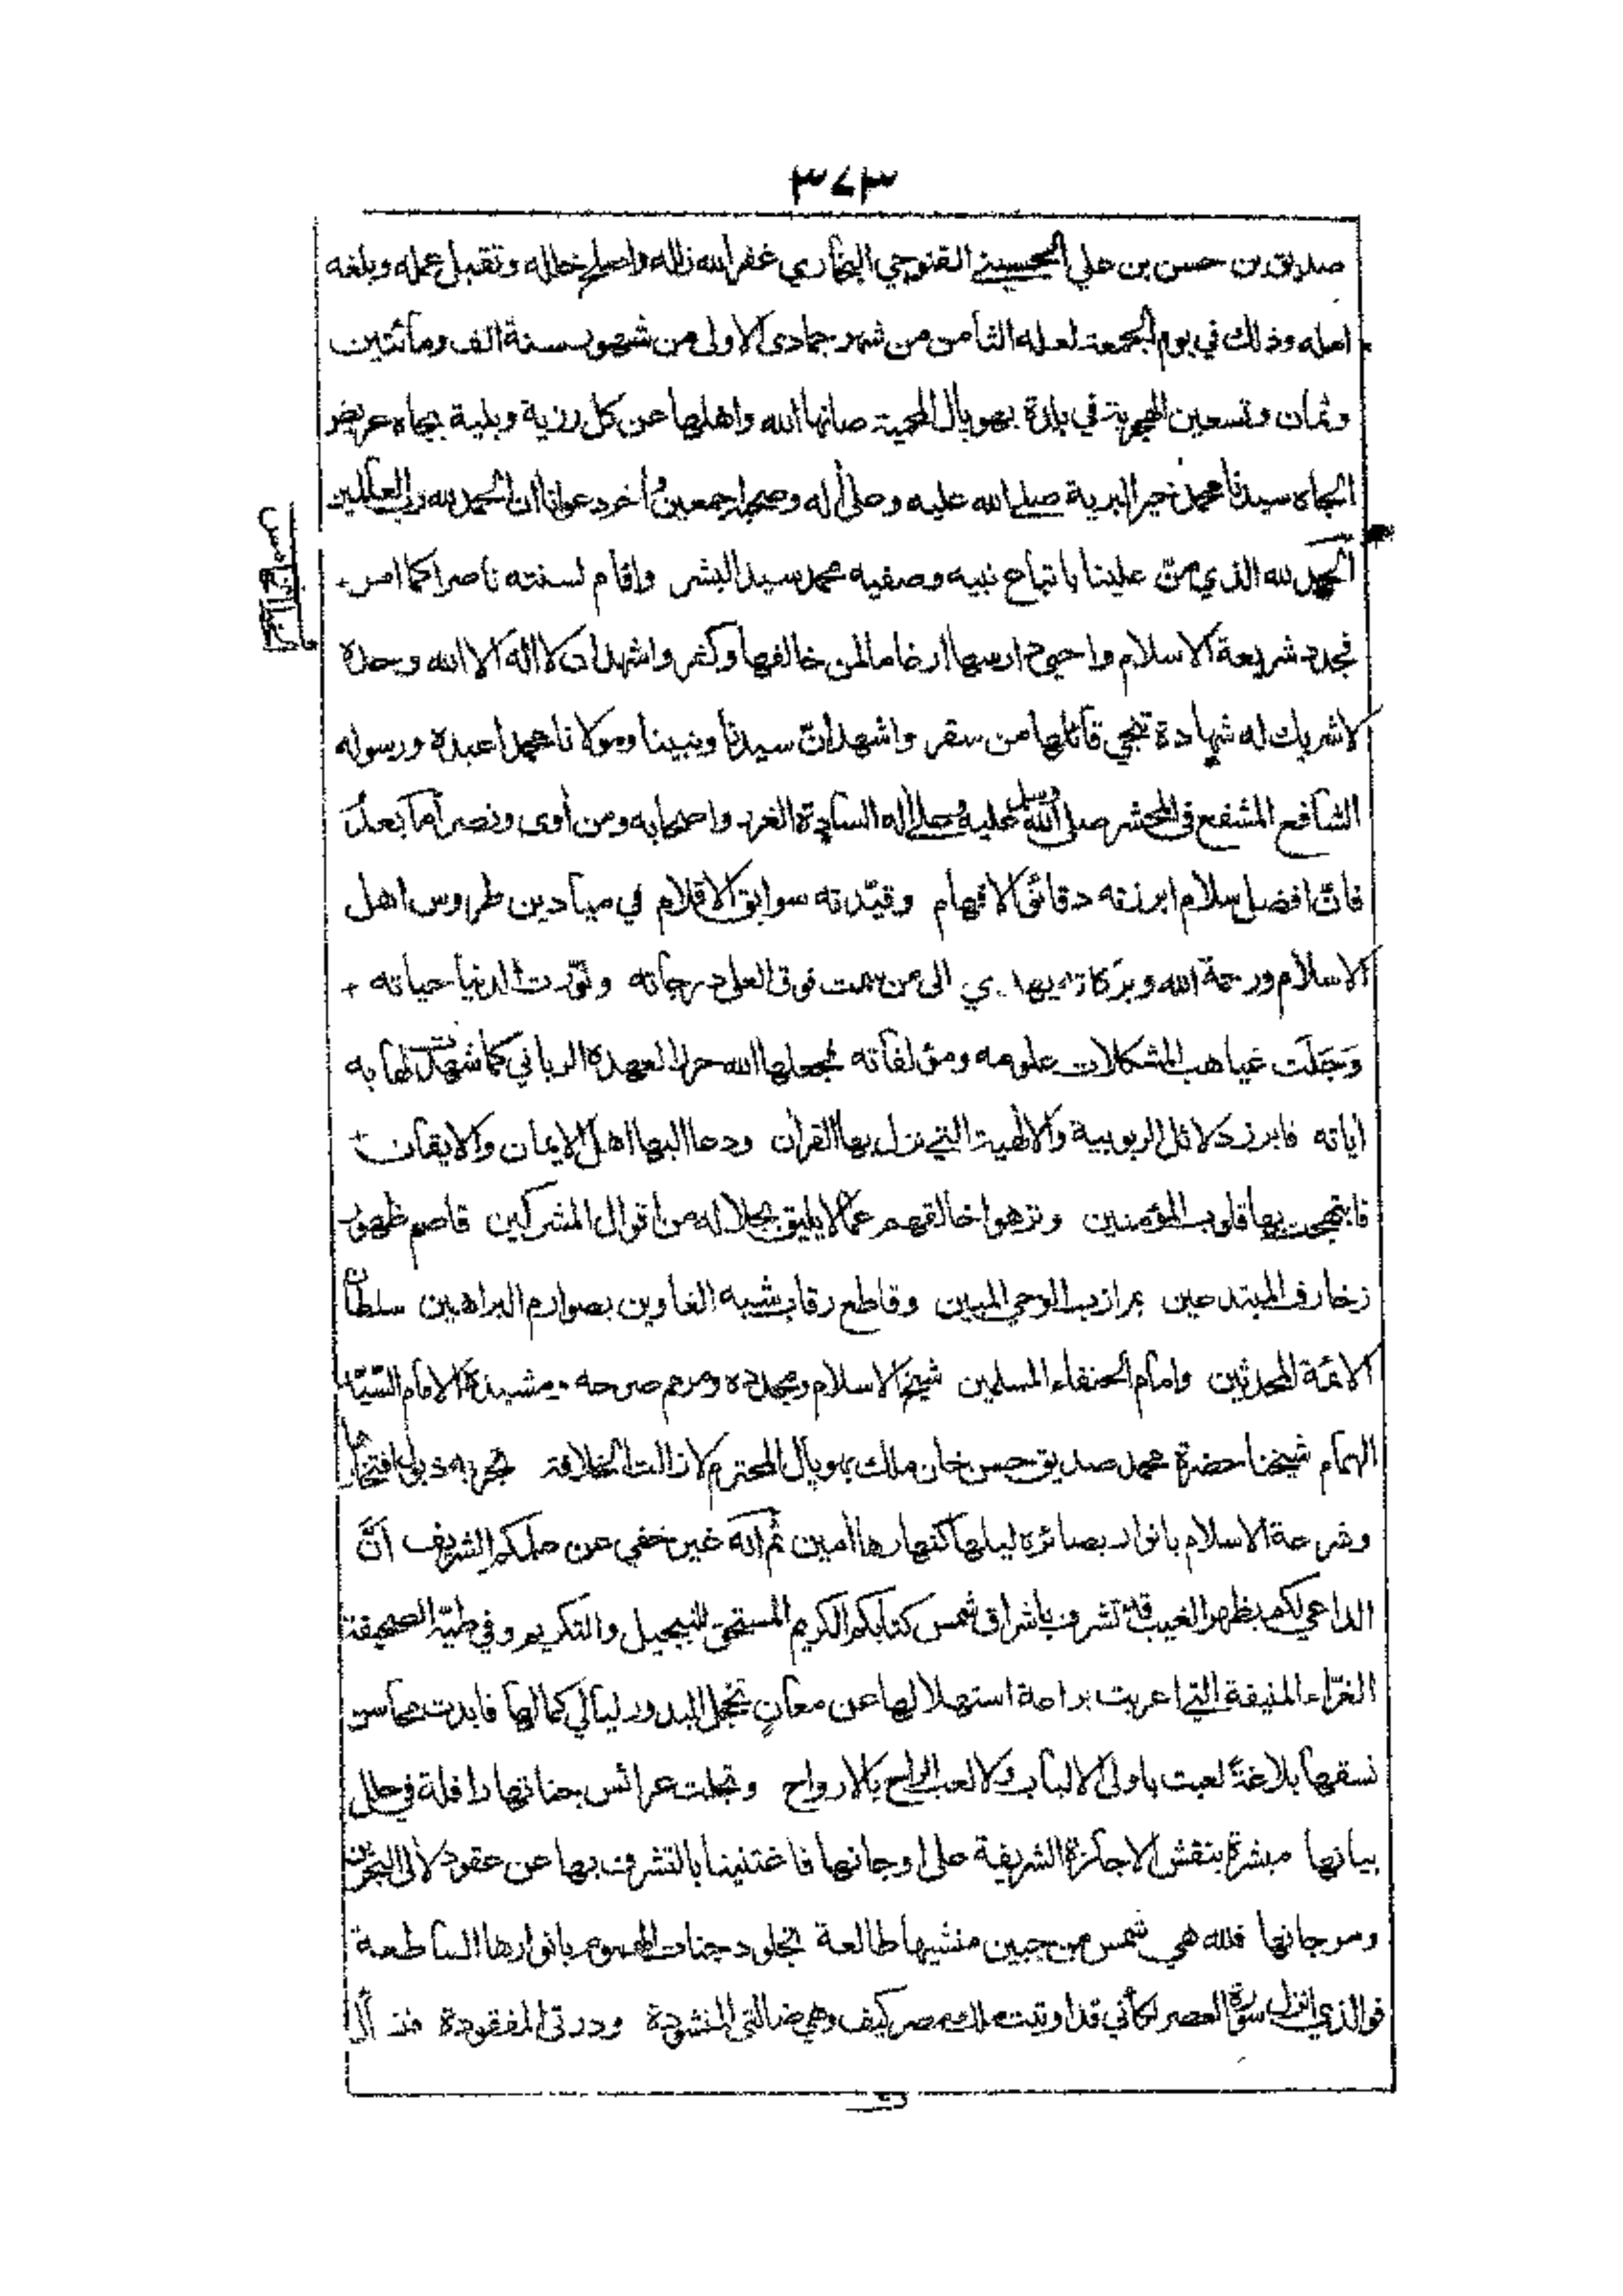 ٣٧٣
صديق بن حسن بن علي الحسيني القنوجي البخاري غفر الله زلله واصلح خلله وتقبل عمله وبلغه
امله وذلك في يوم الجمعة لعله الثامن من شهر جمادى الاولى من شهور سنة الف ومائتين
وثمان وتسعين الهجرية في بلدة بهوپال المحمية صانها الله واهلها عن كل رزية وبلية بجاه عريض
الجاه سيدنا محمد خير البرية صلى الله عليه وعلى اٰله وصحبه اجمعين واٰخر دعوانا ان الحمد لله رب العٰلمين
الحمد لله الذي منّ علينا باتباع نبيه وصفيه محمد سيد البشر واقام لسنته ناصرا كما امر
فجدد شريعة الاسلام واحيى دارسها ارغاما لمن خالفها وكفر واشهد ان لا اله الا الله وحده
لا شريك له شهادة تنجي قائلها من سقر واشهد انّ سيدنا ونبينا ومولانا محمدا عبده ورسوله
الشافع المشفع في المحشر صلى الله عليه وسلم وعلى اٰله السادة الغرر واصحابه ومن أوى ونصر أما بعد
فانّ افضل سلام ابرزته دقائق الافهام وقيّدته سوابق الاقلام في ميادين طروس اهل
الاسلام ورحمة الله وبركاته يهدي الى من سمت فوق العلى درجاته ونوّرت الدنيا حياته
وَجَلَت غياهب المشكلات علومه ومؤلفاته فجعلها الله حرزا لعهده الرباني كما شهدت لها به
اياته فابرز دلائل الربوبية والالهية التي نزل بها القراٰن ودعا اليها اهل الايمان والايقان
فابتهجت بها قلوب المؤمنين ونزهوا خالقهم عما لا يليق بجلاله من اقوال المشركين قاصم ظهور
زخارف المبتدعين بمرازب الوحي المبين وقاطع رقاب شبه الغاوين بصوارم البراهين سلطان
الائمة المحدثين وامام الحنفاء المسلمين شيخ الاسلام ومجدده ومرمم صرحه ومشيده الامام
الهمام شيخنا حضرة محمد صديق حسن خان ملك بهوپال المحترم لا زالت الخلافة تجر به ذيل افتخارها
وضرحة الاسلام بانوار بصائره ليلها كنهارها اٰمين ثم انه غير خفي عن علمكم الشريف أنّ
الداعي لكم بظهر الغيب قد تشرف باشراق شمس كتابكم الكريم المستحق للتبجيل والتكريم وفي طيّه الصحيفة
الغرّاء المنيفة التي اعربت براعة استهلالها عن معانٍ تخجل البدور ليالي كمالها فابدت محاسن
نسقها بلاغةً لعبت باولى الالباب ولا لعب الراح بالارواح وتجلت عرائس جناتها رافلة في حلل
بيانها مبشرة بنقش الاجازة الشريفة على اوجانها فاغتنينا بالتشرف بها عن عقود لاٰلى البحرين
ومرجانها فلله هي شمس من جبين منشيها طالعة تجلو دجنات الهموم بانوارها الساطعة
فوالذي انزل سورة العصر لكأني قد اوتيت ملك مصر كيف وهي ضالتي المنشودة ودرتى المفقودة